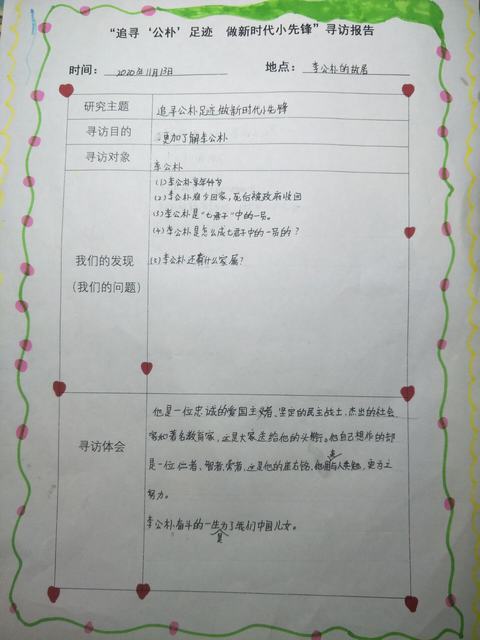 “追寻‘公朴’足迹 做新时代小先锋”寻访报告
时间：2020年11月13日 地点：李公朴的故居
研究主题 追寻公朴足迹做新时代小先锋
寻访目的 更加了解李公朴
寻访对象 李公朴
(1)李公朴享年44岁
(2)李公朴难少回家，死后被政府收回
(3)李公朴是“七君子”中的一员。
(4)李公朴是怎么成七君子中的一员的？
我们的发现
(我们的问题)
(5)李公朴还有什么家属？
寻访体会
他是一位忠诚的爱国主义者、坚定的民主战士，杰出的社会
家和著名教育家，这是大家送给他的头衔。他自己想作的却
是一位仁者、智者、勇者，这是他的座右铭，他
与人类勉，更为之
努力。
李公朴奋斗的一生是为了我们中国儿女。